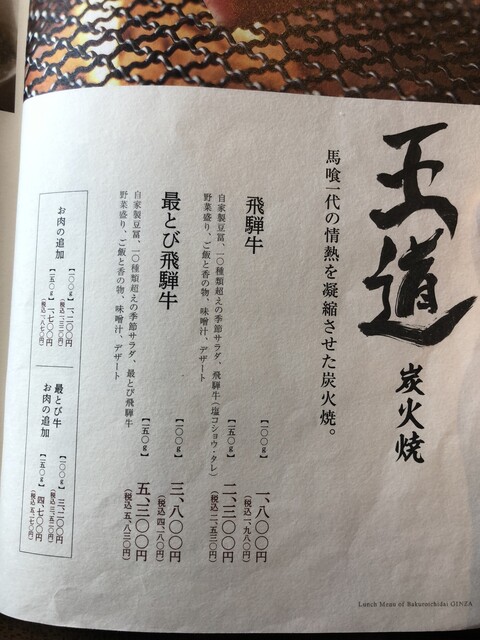 王道 炭火焼
馬喰一代の情熱を凝縮させた炭火焼。
飛騨牛
自家製豆冨、一〇種類超えの季節サラダ、飛騨牛(塩コショウ・タレ)
野菜盛り、ご飯と香の物、味噌汁、デザート
【一〇〇g】 一、八〇〇円
(税込 一、九八〇円)
【一五〇g】 二、三〇〇円
(税込 二、五三〇円)
最とび飛騨牛
自家製豆冨、一〇種類超えの季節サラダ、最とび飛騨牛
野菜盛り、ご飯と香の物、味噌汁、デザート
【一〇〇g】 三、八〇〇円
(税込 四、一八〇円)
【一五〇g】 五、三〇〇円
(税込 五、八三〇円)
お肉の追加
【一〇〇g】 一、二〇〇円
(税込 一、三二〇円)
【一五〇g】 一、七〇〇円
(税込 一、八七〇円)
最とび牛
お肉の追加
【一〇〇g】 三、二〇〇円
(税込 三、五二〇円)
【一五〇g】 四、七〇〇円
(税込 五、一七〇円)
Lunch Menu of Bakuroichidai GINZA